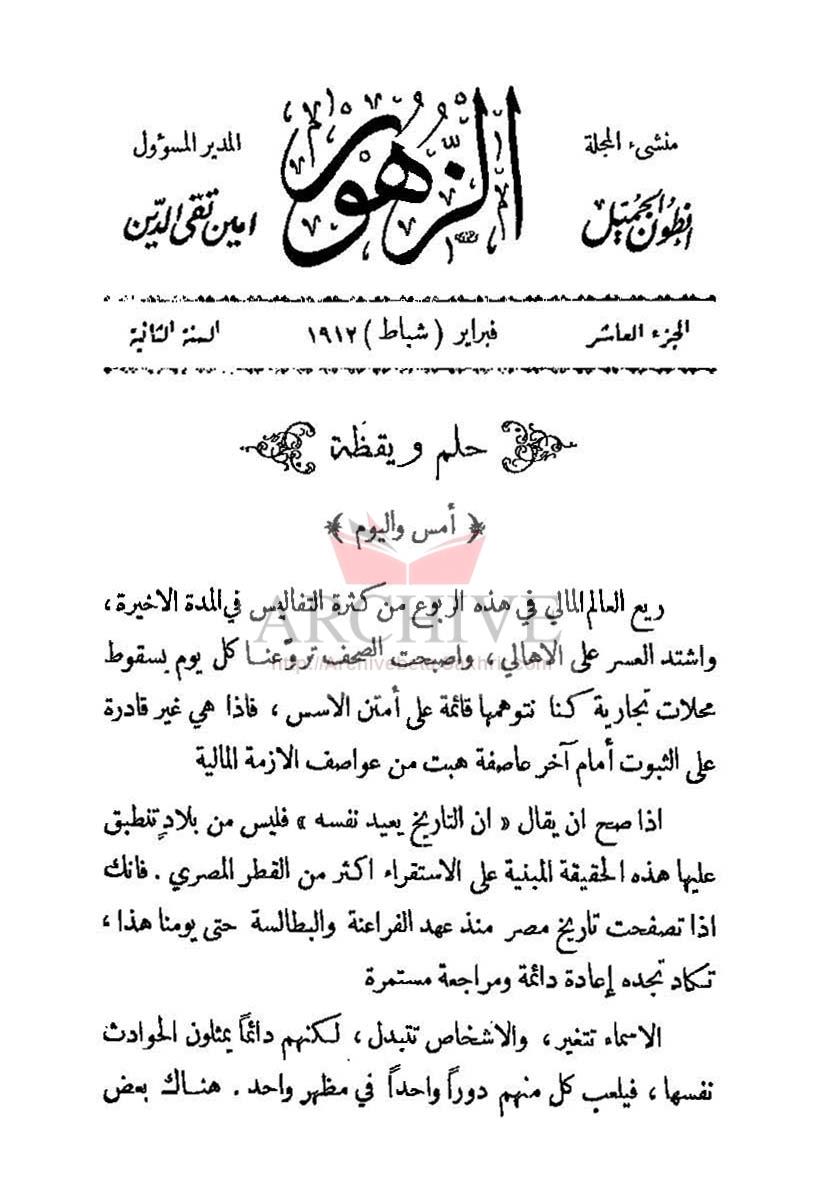 منشىء المجلة
انطون الجميّل
الزّهُور
المدير المسؤول
امين تقي الدّين
الجزء العاشر
فبراير ( شباط ) ١٩١٢
السنة الثانية
حلم ويقظة
﴿ أمس واليوم ﴾
ARCHIVE
ريع العالم المالي في هذه الربوع من كثرة التفاليس في المدة الاخيرة ،
واشتد العسر على الاهالي ، واصبحت الصحف تروّعنا كل يوم بسقوط
محلات تجارية كنا نتوهمها قائمة على أمتن الاسس ، فاذا هي غير قادرة
على الثبوت أمام آخر عاصفة هبت من عواصف الازمة المالية
اذا صح ان يقال « ان التاريخ يعيد نفسه » فليس من بلادٍ تنطبق
عليها هذه الحقيقة المبنية على الاستقراء اكثر من القطر المصري . فانك
اذا تصفحت تاريخ مصر منذ عهد الفراعنة والبطالسة حتى يومنا هذا ،
تكاد تجده إعادة دائمة ومراجعة مستمرة
الاسماء تتغير ، والاشخاص تتبدل ، لكنهم دائماً يمثلون الحوادث
نفسها ، فيلعب كل منهم دوراً واحداً في مظهر واحد . هناك بعض